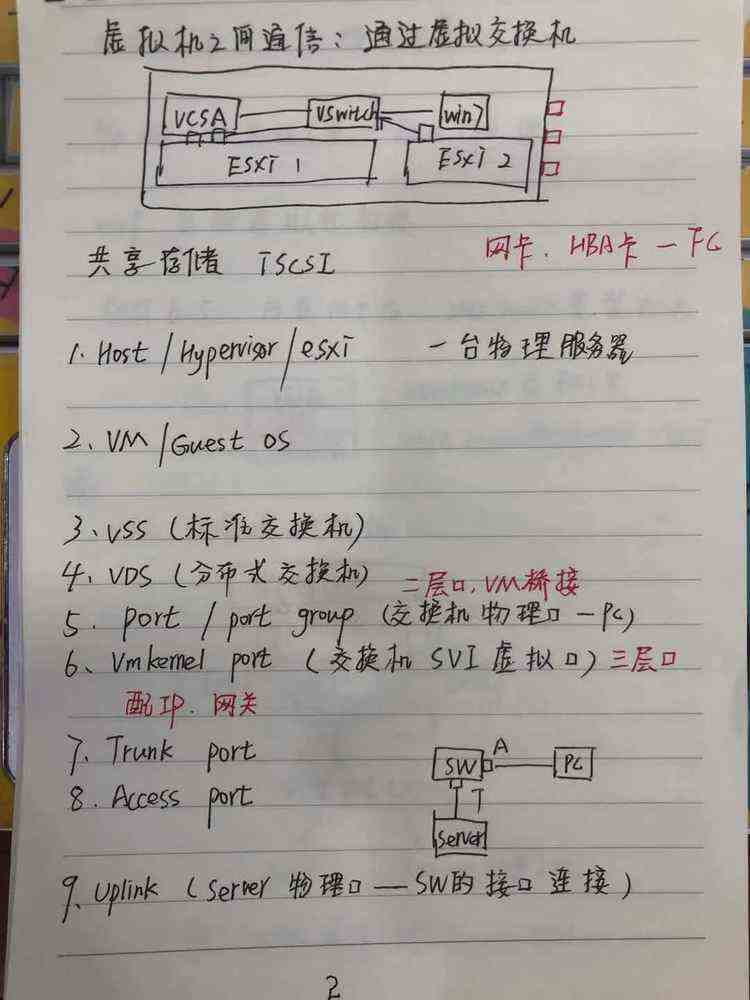 虚拟机之间通信：通过虚拟交换机
VCSA vswitch win7
ESXI 1 ESXI 2
网卡、HBA卡 — FC
共享存储 ISCSI
1. Host / Hypervisor / esxi 一台物理服务器
2、VM / Guest OS
3、VSS (标准交换机)
4、VDS (分布式交换机) 二层口,VM桥接
5. port / port group (交换机物理口 — PC)
6、Vmkernel port (交换机 SVI 虚拟口) 三层口
配IP、网关
7. Trunk port
8. Access port
SW A PC
T
Server
9、Uplink (Server 物理口 — SW的接口连接)
2